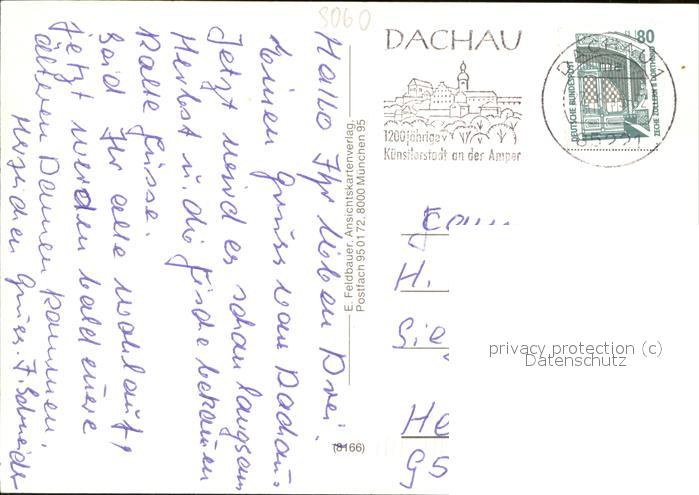 8060
DACHAU
1200jährige
Künstlerstadt an der Amper
80
DEUTSCHE BUNDESPOST
ZECHE ZOLLERN II DORTMUND
DACHAU 1
Hallo Ihr lieben Drei!
Einen Gruss von Dachau.
Jetzt wird es schon langsam
Herbst u. die Füsse bekommen
kalte Füsse.
Seid Ihr alle wohlauf,
Jetzt werden bald euere
älteren Damen kommen.
Herzlichen Gruss.
E. Feldbauer, Ansichtskartenverlag
Postfach 95 01 72, 8000 München 95
(8166)
H.
Sie
He
95
privacy protection (c)
Datenschutz